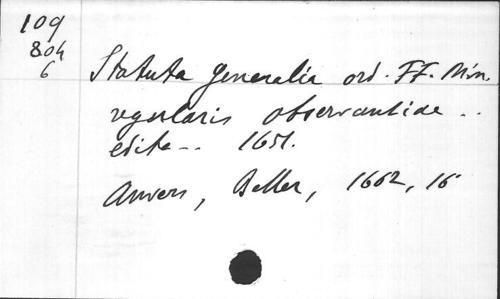 109
804
6
Statuta generalia ord. FF. Min.
regularis observantiae ..
edita -- 1651.
Anvers, Beller, 1662, 16°